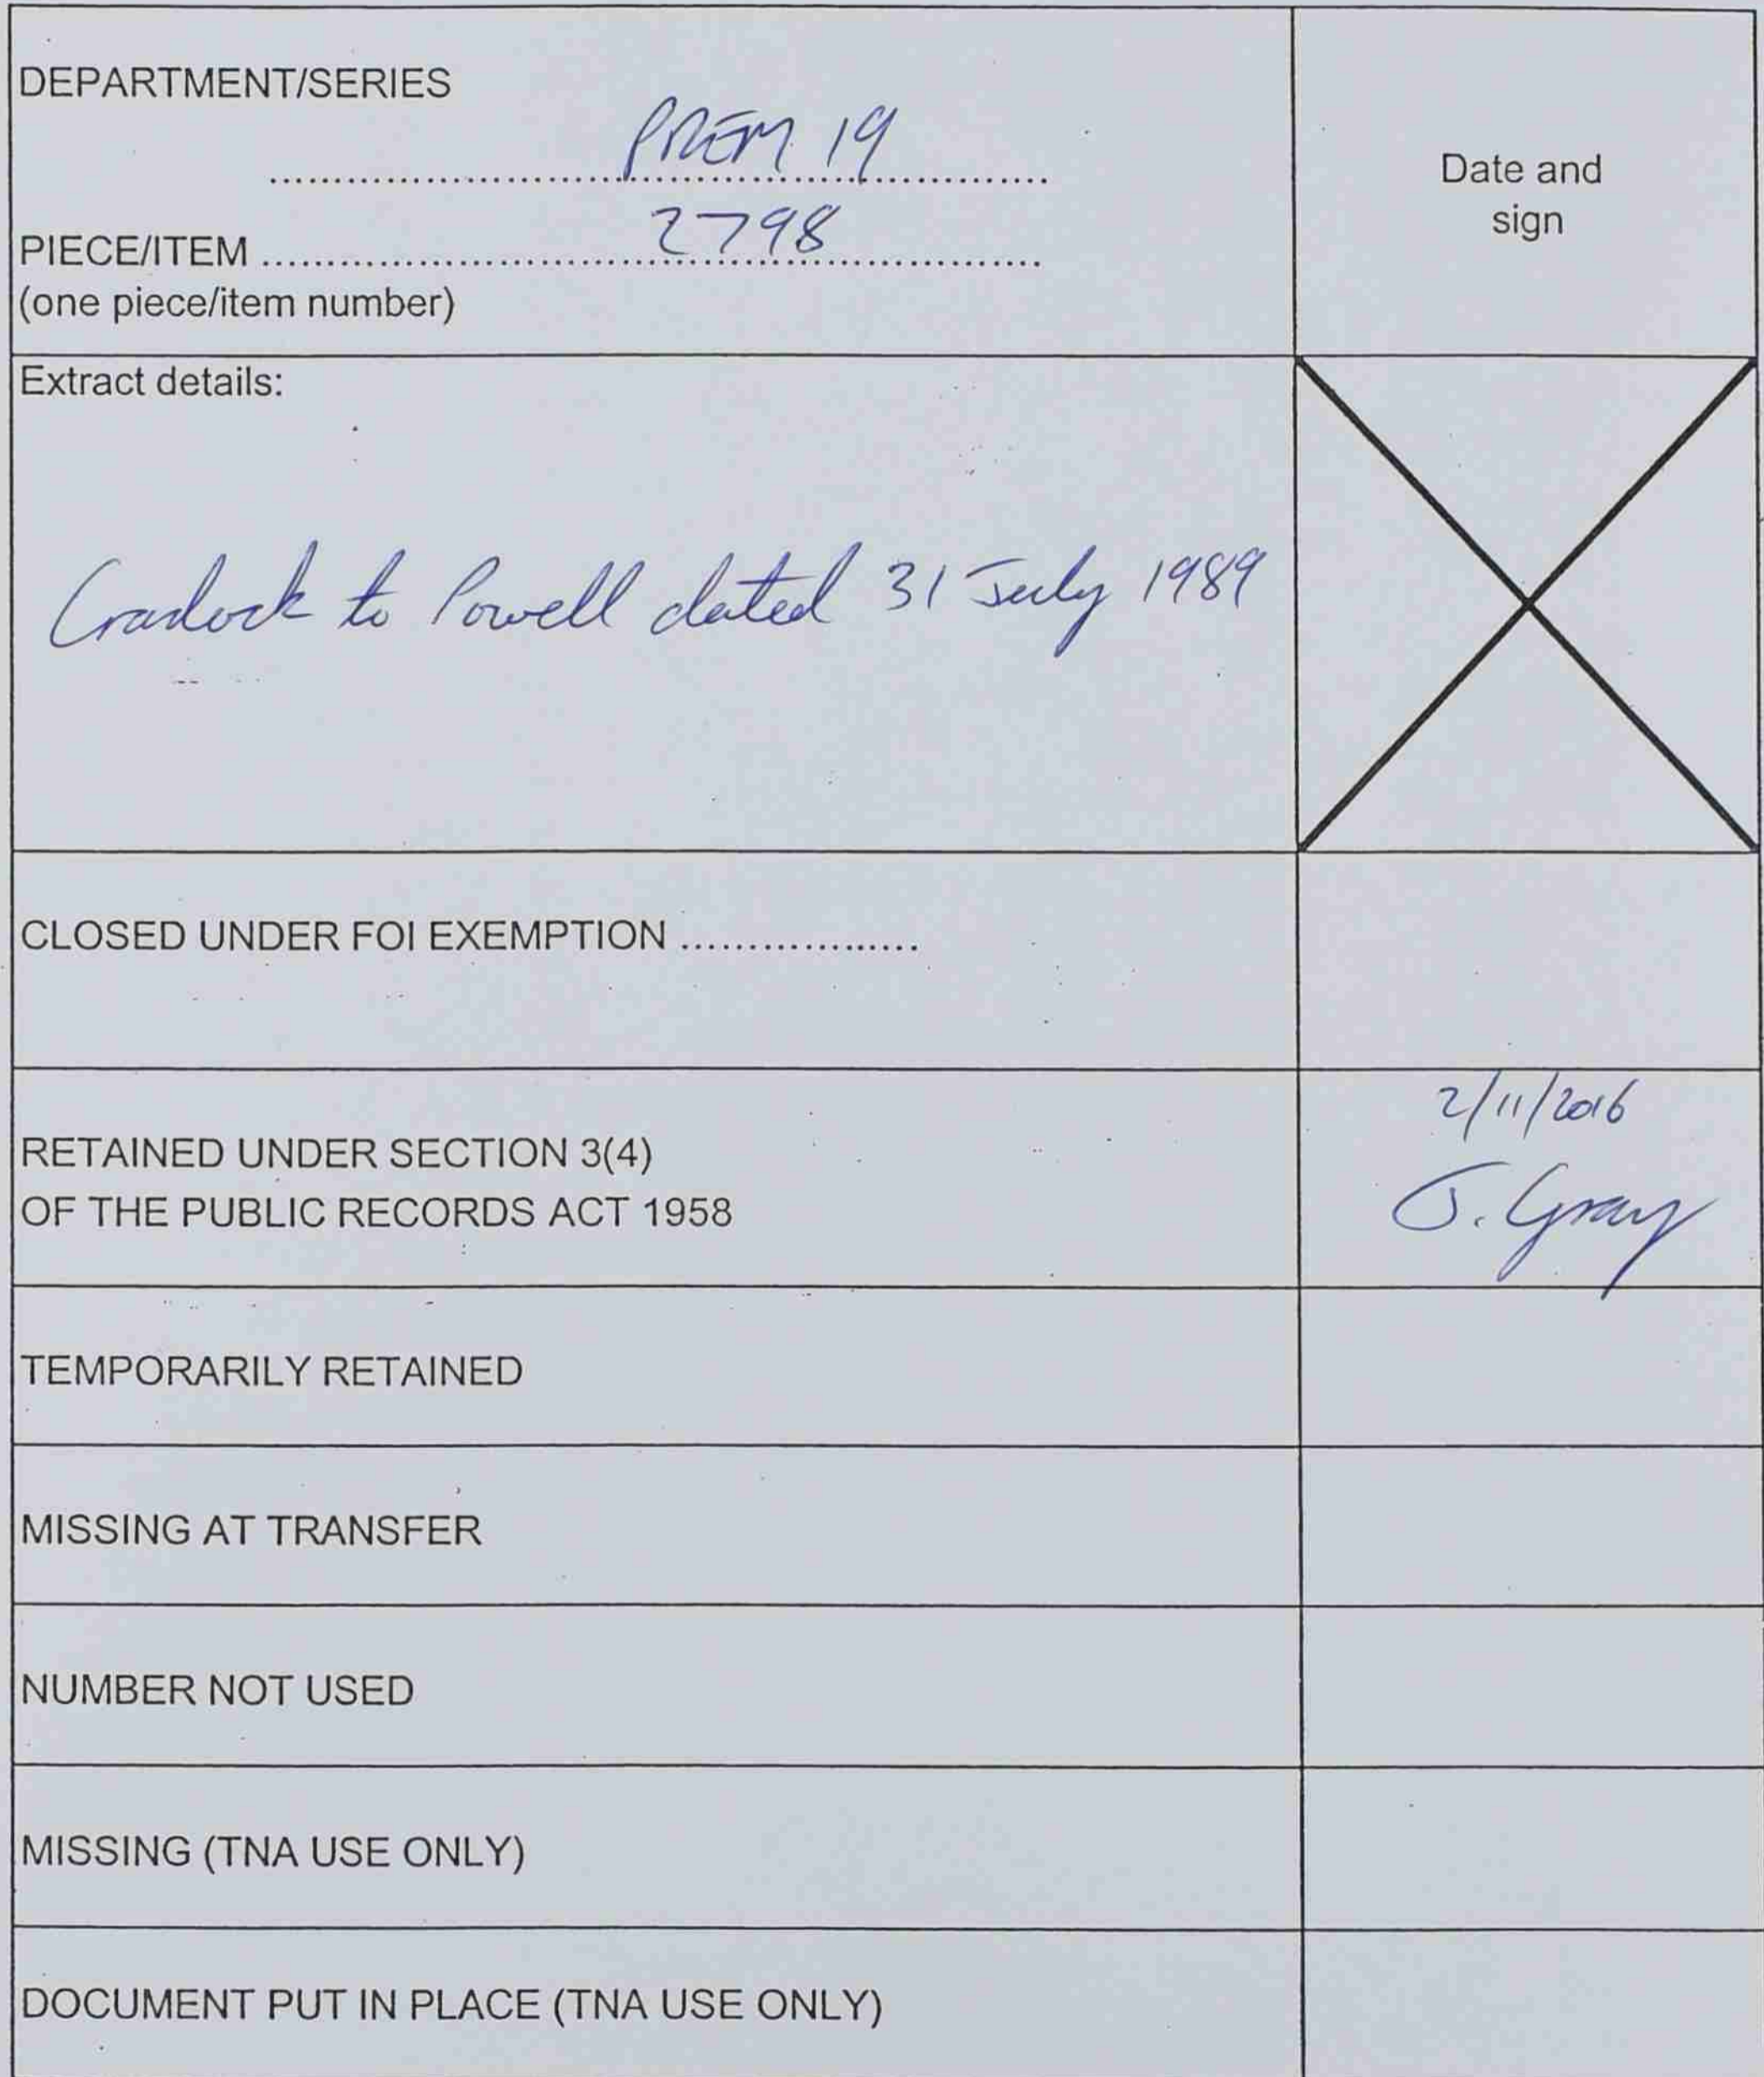 DEPARTMENT/SERIES
PREM 19
Date and
sign
PIECE/ITEM 2798
(one piece/item number)
Extract details:
Cradock to Powell dated 31 July 1989
CLOSED UNDER FOI EXEMPTION ..................
RETAINED UNDER SECTION 3(4)
OF THE PUBLIC RECORDS ACT 1958
2/11/2016
J. Gray
TEMPORARILY RETAINED
MISSING AT TRANSFER
NUMBER NOT USED
MISSING (TNA USE ONLY)
DOCUMENT PUT IN PLACE (TNA USE ONLY)